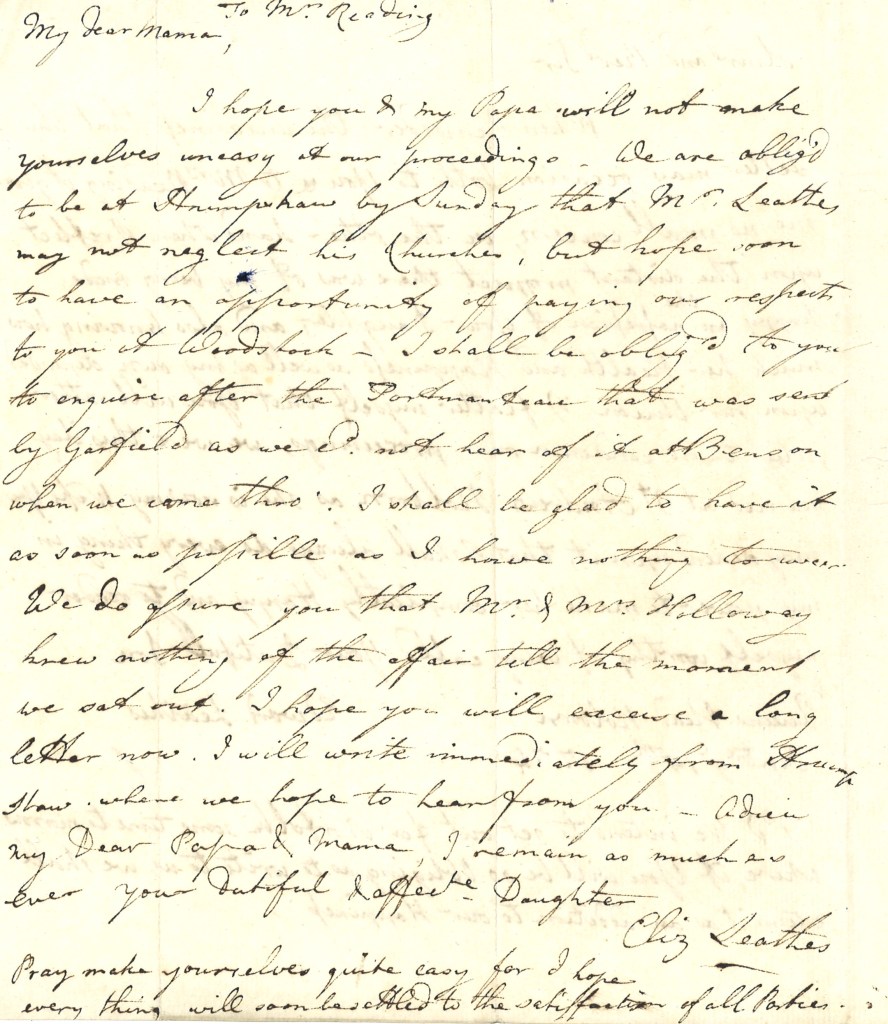 To Mrs Reading
My Dear Mama,
I hope you & my Papa will not make
yourselves uneasy at our proceedings - We are oblig'd
to be at Strumpshaw by Sunday that Mr. Leathes
may not neglect his Churches, but hope soon
to have an opportunity of paying our respects
to you at Woodstock - I shall be oblig'd to you
to enquire after the Portmanteau that was sent
by Garfield as we cd. not hear of it at Benson
when we came thro'. I shall be glad to have it
as soon as possible as I have nothing to wear.
We do assure you that Mr. & Mrs Holloway
knew nothing of the affair till the moment
we sat out. I hope you will excuse a long
letter now. I will write immediately from Strump
shaw. where we hope to hear from you - Adieu
my Dear Papa & Mama, I remain as much as
ever your dutiful & affecte. Daughter
Eliz Leathes
Pray make yourselves quite easy for I hope
every thing will soon be settled to the satisfaction of all Parties.